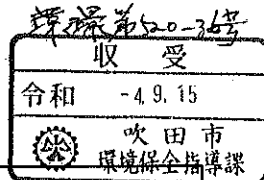 環第520-36号
収受
令和 -4.9.15
吹田市
環境保全指導課